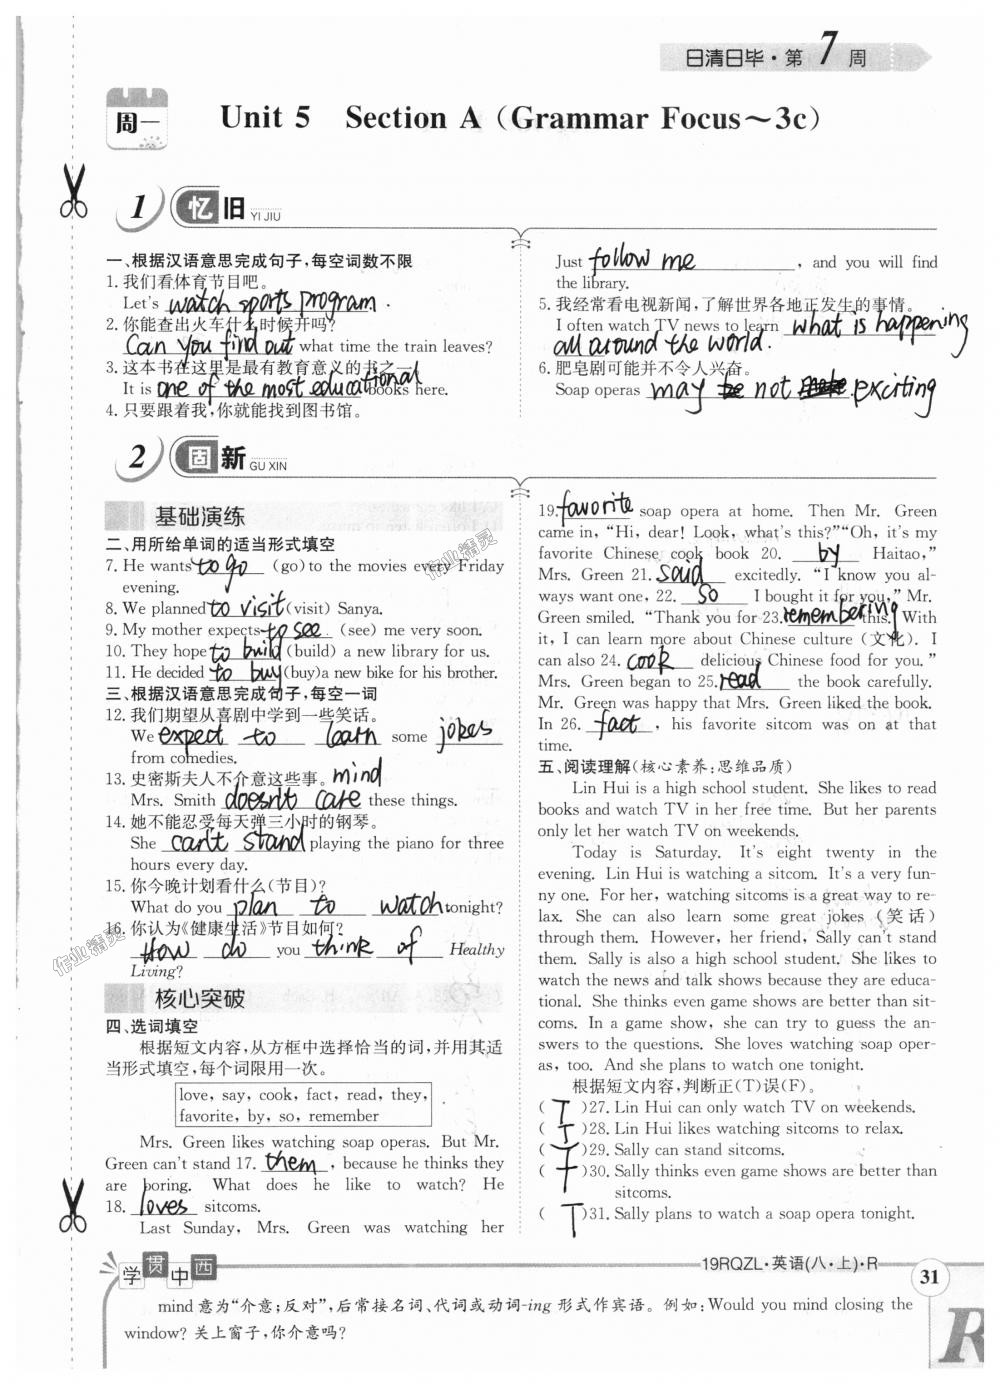 日清日毕·第7周
周一
Unit 5 Section A (Grammar Focus～3c)
1 忆旧 YI JIU
一、根据汉语意思完成句子,每空词数不限
1. 我们看体育节目吧。
Let's watch sports program.
2. 你能查出火车什么时候开吗?
Can you find out what time the train leaves?
3. 这本书在这里是最有教育意义的书之一。
It is one of the most educational books here.
4. 只要跟着我,你就能找到图书馆。
Just follow me , and you will find
the library.
5. 我经常看电视新闻,了解世界各地正发生的事情。
I often watch TV news to learn what is happening
all around the world.
6. 肥皂剧可能并不令人兴奋。
Soap operas may be not exciting
2 固新 GU XIN
基础演练
二、用所给单词的适当形式填空
7. He wants to go (go)to the movies every Friday
evening.
8. We planned to visit (visit) Sanya.
9. My mother expects to see (see) me very soon.
10. They hope to build (build) a new library for us.
11. He decided to buy (buy)a new bike for his brother.
三、根据汉语意思完成句子,每空一词
12. 我们期望从喜剧中学到一些笑话。
We expect to learn some jokes
from comedies.
13. 史密斯夫人不介意这些事。mind
Mrs. Smith doesn't care these things.
14. 她不能忍受每天弹三小时的钢琴。
She can't stand playing the piano for three
hours every day.
15. 你今晚计划看什么(节目)?
What do you plan to watch tonight?
16. 你认为《健康生活》节目如何?
How do you think of Healthy
Living?
核心突破
四、选词填空
根据短文内容,从方框中选择恰当的词,并用其适
当形式填空,每个词限用一次。
love, say, cook, fact, read, they,
favorite, by, so, remember
Mrs. Green likes watching soap operas. But Mr.
Green can't stand 17. them , because he thinks they
are boring. What does he like to watch? He
18. loves sitcoms.
Last Sunday, Mrs. Green was watching her
19. favorite soap opera at home. Then Mr. Green
came in, “Hi, dear! Look, what's this?”“Oh, it's my
favorite Chinese cook book 20. by Haitao,”
Mrs. Green 21. said excitedly. “I know you al-
ways want one, 22. so I bought it for you,” Mr.
Green smiled. “Thank you for 23. remembering this. With
it, I can learn more about Chinese culture (文化). I
can also 24. cook delicious Chinese food for you.”
Mrs. Green began to 25. read the book carefully.
Mr. Green was happy that Mrs. Green liked the book.
In 26. fact , his favorite sitcom was on at that
time.
五、阅读理解(核心素养:思维品质)
Lin Hui is a high school student. She likes to read
books and watch TV in her free time. But her parents
only let her watch TV on weekends.
Today is Saturday. It's eight twenty in the
evening. Lin Hui is watching a sitcom. It's a very fun-
ny one. For her, watching sitcoms is a great way to re-
lax. She can also learn some great jokes (笑话)
through them. However, her friend, Sally can't stand
them. Sally is also a high school student. She likes to
watch the news and talk shows because they are educa-
tional. She thinks even game shows are better than sit-
coms. In a game show, she can try to guess the an-
swers to the questions. She loves watching soap oper-
as, too. And she plans to watch one tonight.
根据短文内容,判断正(T)误(F)。
( T )27. Lin Hui can only watch TV on weekends.
( T )28. Lin Hui likes watching sitcoms to relax.
( )29. Sally can stand sitcoms.
( )30. Sally thinks even game shows are better than
sitcoms.
( T )31. Sally plans to watch a soap opera tonight.
学贯中西
19RQZL·英语(八·上)·R 31
mind 意为“介意;反对”,后常接名词、代词或动词-ing 形式作宾语。例如:Would you mind closing the
window? 关上窗子,你介意吗?
R
作业精灵
作业精灵